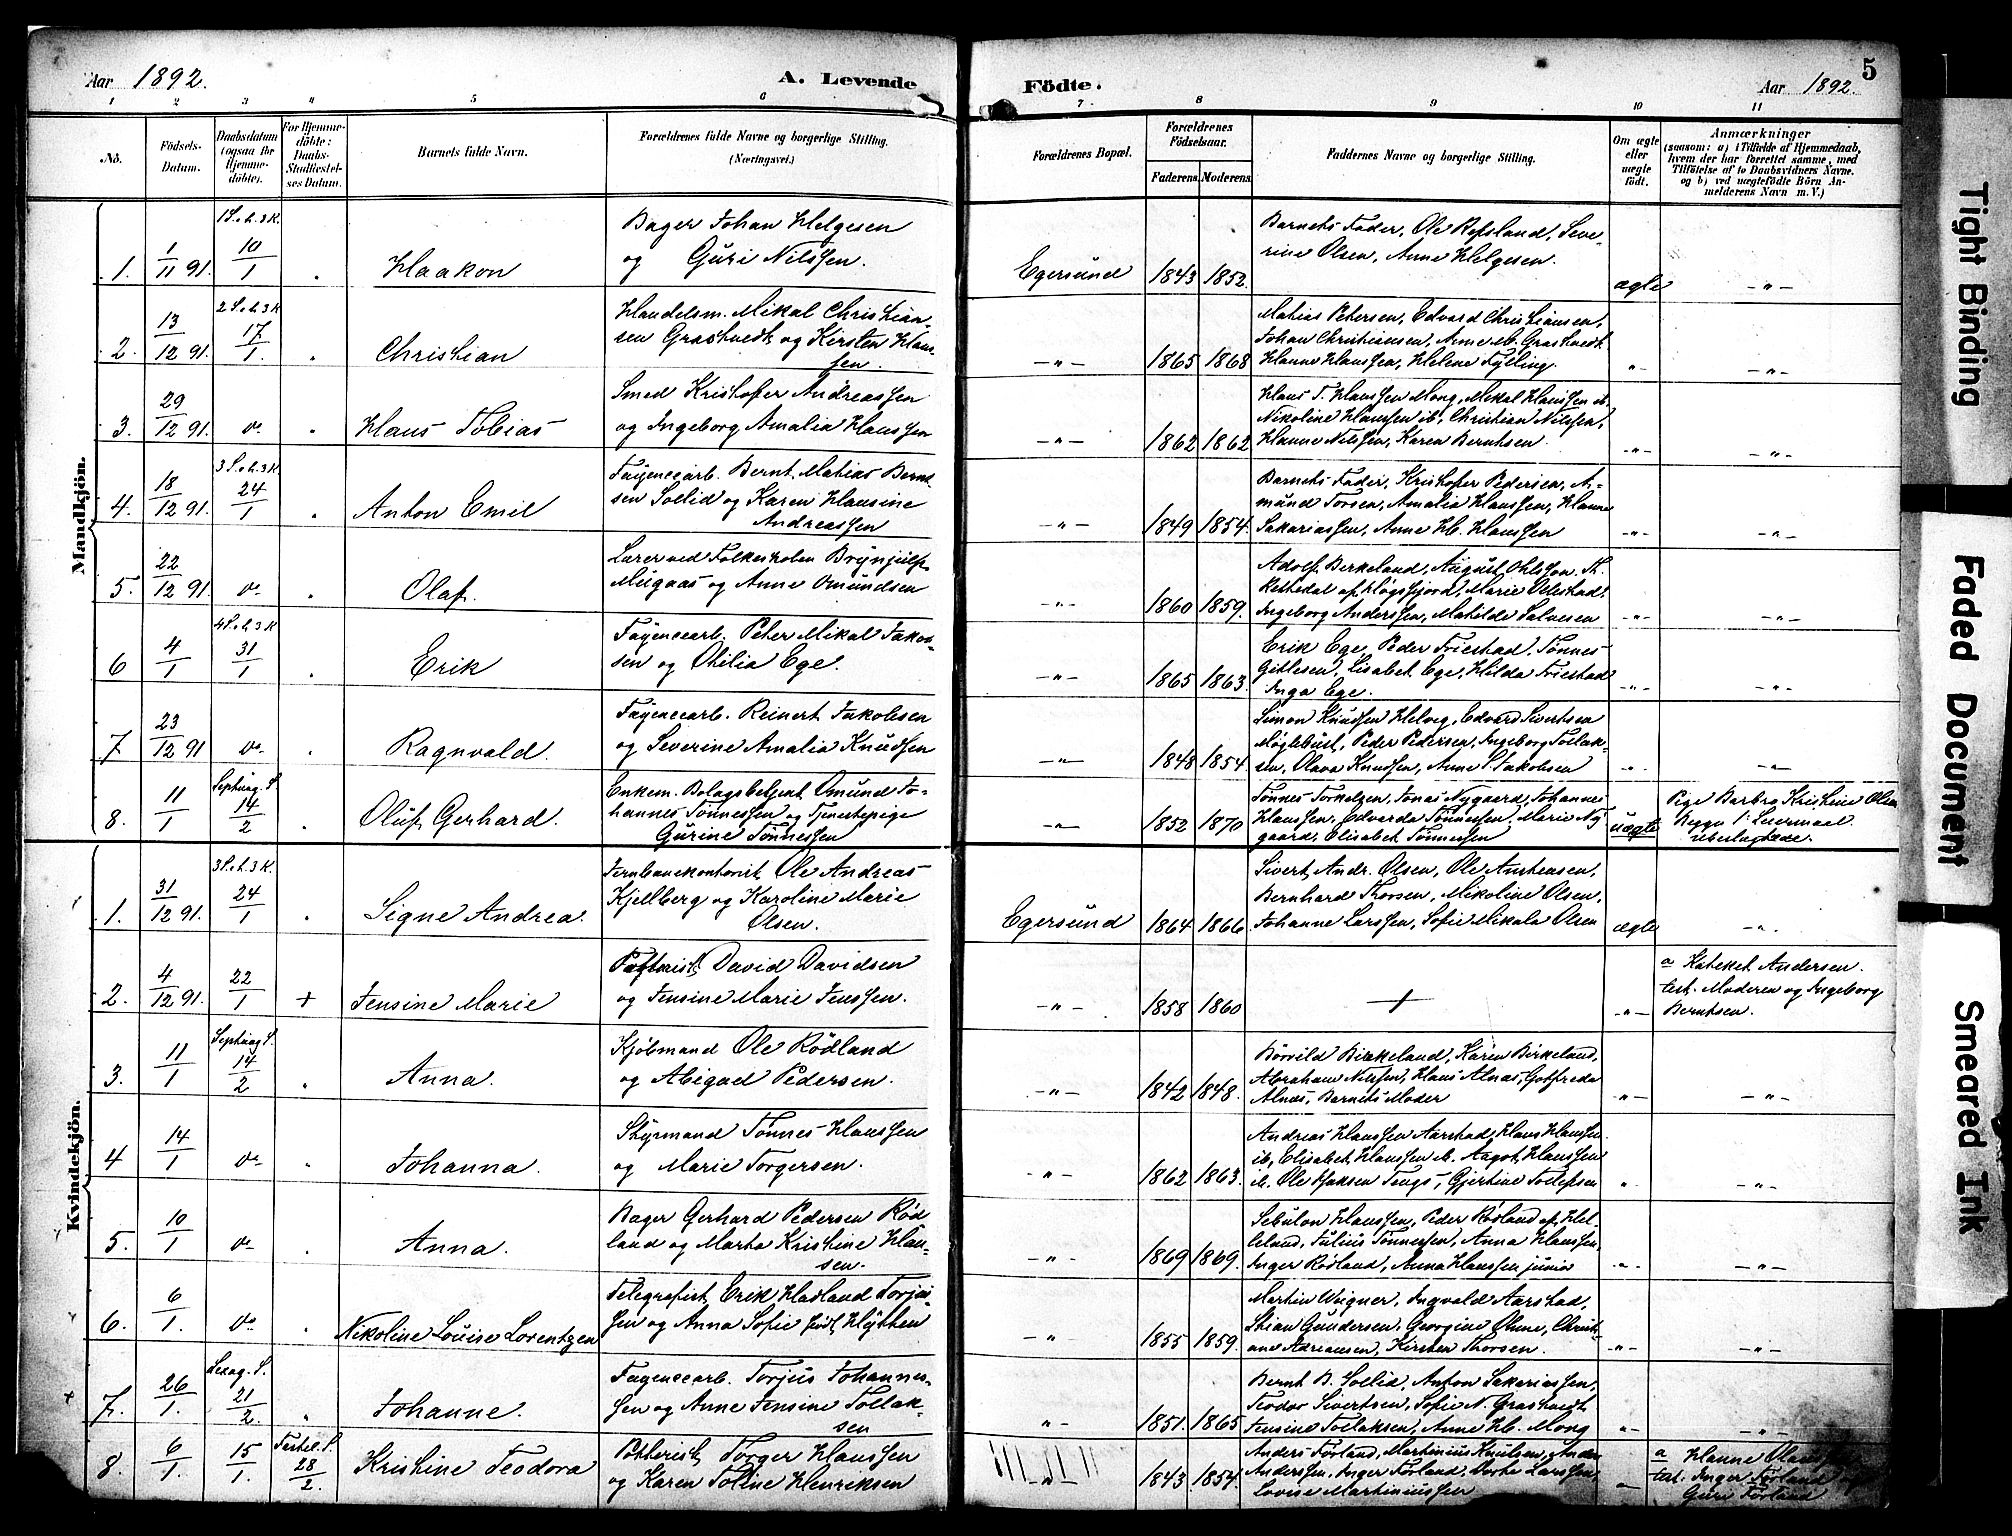 Aar 1892.
A. Levende
Födte.
5
Aar 1892.
1 2 3 4 5 6 7 8 9 10 11
No.
Födsels-Datum.
Daabsdatum (ogsaa for Hjemme-döbte).
For Hjemme-döbte: Daabs-Stadfæstel-ses Datum.
Barnets fulde Navn.
Forældrenes fulde Navne og borgerlige Stilling. (Næringsvei.)
Forældrenes Bopæl.
Forældrenes Födselsaar.
Faderens. Moderens.
Faddernes Navne og borgerlige Stilling.
Om ægte eller uægte födt.
Anmærkninger
(saasom: a) i Tilfælde af Hjemmedaab,
hvem der har forrettet samme, med
Tilföielse af to Daabsvidners Navne.
og b) ved uægtefödte Börn An-
melderens Navn m. V.)
Mandkjön.
1. 1/11 91. 1 S. e. h. 3 K. 10/1 " Haakon
Bager Johan Helgesen
og Guri Nilssen.
Egersund 1843 1852.
Barnets Fader, Ole Refsland, Seve-
rine Olsen, Anne Helgesen.
ægte -"-
2. 13/12 91. 2 S. e. h. 3 K 17/1. " Christian
Handelsm. Mikal Christian-
sen Grastvedt og Kirsten Haus-
sen.
-"- 1865 1868
Matias Petersen, Edvard Christiansen,
Johan Christiansen, Anne M. Grastvedt
Hanne Hanssen, Helene Fylling.
" -"-
3. 29/12 91. do " Hans Tobias
Smed Kristofer Andreassen
og Ingeborg Amalia Hanssen
-"- 1862 1862
Hans T. Hanssen Mong, Mikal Hanssen ib.
Nikoline Hanssen ib, Christian Nilssen,
Hanne Nilssen, Karen Berntsen.
-"- -"-
4. 18/12 91. 3 S. e. h. 3 K 24/1 " Anton Emil
Fayencearb. Bernt Matias Bernt-
sen Sollid og Karen Hansine
Andreassen
-"- 1849 1854.
Barnets Fader, Kristofer Pedersen, A-
mund Torsen, Amalia Hanssen, Hanne
Sakariassen, Anne Hb. Hanssen
-"- -"-
5. 22/12 91. do " Olaf.
Lærer ved Folkeskolen Brynjulf
Mugaas og Anne Omundsen
-"- 1860 1859.
Adolf Birkeland, August Ohlsson. Th.
Ingeborg Anderssen, Mathilde Salvesen
-"- -"-
6 4/1 4 S. e. h. 3 K 31/1 " Erik
Fayencearb. Peter Mikal Jakob-
sen og Othilia Ege.
-"- 1865 1863.
Erik Ege, Peder Friestad, Tønnes
Gitlesen, Lisabet Ege, Hilda Friestad
Inga Ege.
-"- -"-
7. 23/12 91 do " Ragnvald.
Fayencearb. Reinert Jakobsen
og Severine Amalia Knudsen
-"- 1848 1854.
Simon Knudsen Helvig, Edvard Sivertsen
Møglebust, Peder Pedersen, Ingeborg Tollak-
sen, Olava Knudsen, Anne S. Jakobsen
" -"-
8. 11/1 Septuag. S. 14/2 " Oluf Gerhard.
Enkem. Bolagsbetjent Omund Jo-
hannes Tönnessen og Tjenestepige
Gurine Tönnessen
-"- 1852 1870
Tönnes Torkelsen, Jonas Nygaard, Johannes
Hanssen, Edvarda Tönnessen, Marie Ny-
gaard, Elisabet Tönnessen
uægte
Pige Barbro Kristine Olsen
Kvindekjön.
1. 31/12 91. 3 S. e. h. 3 K. 24/1 " Signe Andrea.
Jernbanekontorist Ole Andreas
Kjellberg og Karoline Marie
Olsen.
Egersund 1864 1866.
Sivert Andr. Olsen, Ole Austensen,
Bernhard Thorsen, Mikoline Olsen,
Johanne Larssen, Sofie Mikala Olsen
ægte -"-
2. 4/12 91. 22/1 + Jensine Marie
David Davidsen
og Jensine Marie Jenssen.
-"- 1858 1860
+
-"-
a Kateket Andersen.
test. Moderen og Ingeborg
Berntsen.
3. 11/1 Septuag S. 14/2 " Anna.
Kjöbmand Ole Rödland
og Abigael Pedersen.
-"- 1842 1848.
Börvild Birkeland, Karen Birkeland,
Abraham Nilssen, Hans Alnæs, Gotfreda
Alnæs, Barnets Moder
-"- -"-
4 14/1 do " Johanna.
Styrmand Tönnes Hanssen
og Marie Torgersen.
-"- 1862 1863.
Andreas Hanssen Aarstad, Hans Hanssen
ib, Elisabet Hanssen ib. Aagot Hanssen
ib. Ole Isaksen Tengs, Gjertine Tollefsen
" -"-
5. 10/1 do " Anna.
Bager Gerhard Pedersen Röd-
land og Marta Kristine Han-
sen.
-"- 1869 1869.
Sebulon Hanssen, Peder Rödland af Hel-
leland, Julius Tönnessen, Anna Hanssen,
Inger Rödland, Anna Hanssen junior
-"- -"-
6. 6/1. do " Nikoline Louise Lorentzen
Telegrafist Erik Hadland Torjus-
sen og Anna Sofie födt Hytten
-"- 1855 1859.
Martin Weigner, Ingvald Aarstad,
Stian Gundersen, Georgine Ohme, Christi-
ane Adriansen, Kirsten Thorsen.
-"- -"-
7. 26/1. Sexag. S. 21/2. " Johanne.
Fayencearb. Torjus Johannes-
sen og Anne Jensine Tollak-
sen
" 1851. 1865
Bernt B. Sollid, Anton Sakariassen,
Teodor Sivertsen, Sofie N. Grastvedt
Jensine Tollaksen, Anne Hb. Mong
" -"-
8. 6/1. 15/1. Fastel. S. 28/2. Kristine Teodora
Potterist Torger Hanssen
og Karen Toline Henriksen
" 1843 1854.
Anders Förland, Martinius Knutsen, Anders
Anderssen, Inger Förland, Dorte Larssen,
Lovise Martiniussen
-"-
a Hanne
test. Inger Förland og
Guri Förland
Tight Binding
Faded Document
Smeared Ink